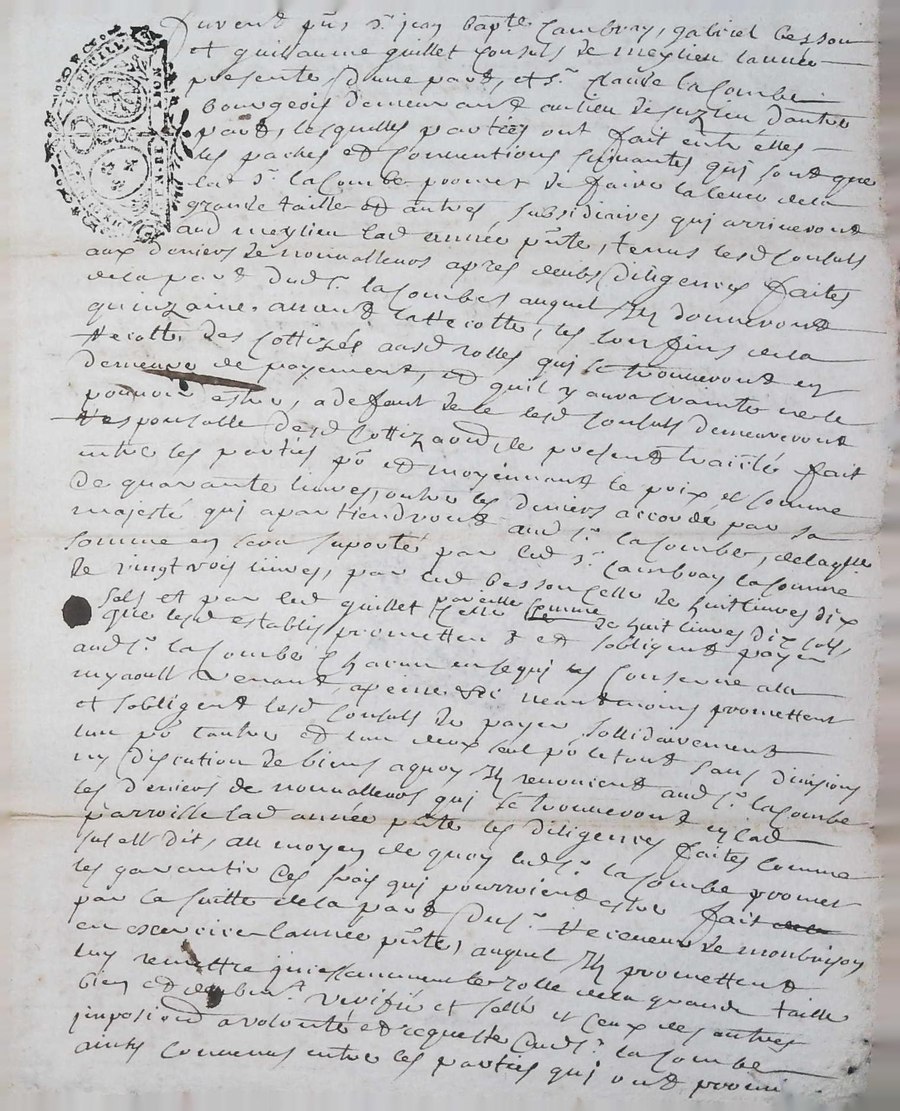 Furent pnts sr jean bapte Cambray, gabriel besson
et guillaume guillet Consuls de meylieu lannee
presente, dune part, et sr claude lacombe
Bourgeois demeurant au lieu de suzieu dautre
part, lesquelles parties ont fait entre elles
les paches et Conventions suivantes qui sont que
led sr lacombe promet de faire la leuee de la
grande taille et autres subsidiaires qui arriueront
aud meylieu lad année pnte, tenus lesd Consuls
aux deniers de nonualleurs apres deubes diligences faites
de la part dud sr lacombes auquel Ils donneront
quinzaine auant la Recolte, les confins de la
Recolte des Cottizés ausd rolles qui se trouueront en
demeure de payement, et quil y aura crainte ne le
pouuoir estre, a defaut de ce lesd Consuls demeureront
Responsable desd Cottizaon, le present traicté fait
entre les parties po et moyennant le prix et somme
De quarante liures, outre les deniers accordé par sa
majesté qui apartiendront aud sr lacombe, de laqlle
somme en sera suporté par led sr Cambray la somme
de vingt trois liures, par led besson celle de huit liures dix
sols et par led guillet pareille somme de huit liures dix sols,
que lesd establis promettent et sobligent payer
aud sr lacombe Chacun en ce qui les Conserne a la
my aoust venant, a peine &c neantmoins promettent
et sobligent lesd Consuls de payer sollidairement
lun po lautre et lun deux seul po le tout sans diuision
ny discution de biens a quoy Ils renoncent aud sr lacombe
les deniers de nonualleurs qui se trouueront en lad
parroisse lad année pnte les diligences faites comme
sus est dit, au moyen de quoy led sr lacombe promet
les garantir des frais qui pourroient estre fait
par la suitte de la part du sr Receueur de monbrison
en exercice lannée pnte, auquel Ils promettent
luy remettre incessamment le rolle de la grande taille
bien et deubmt verifié et sellé et ceux des autres
imposions a volonté et requeste dud sr lacombe
ainsy Conuenus entre les parties qui ont promi